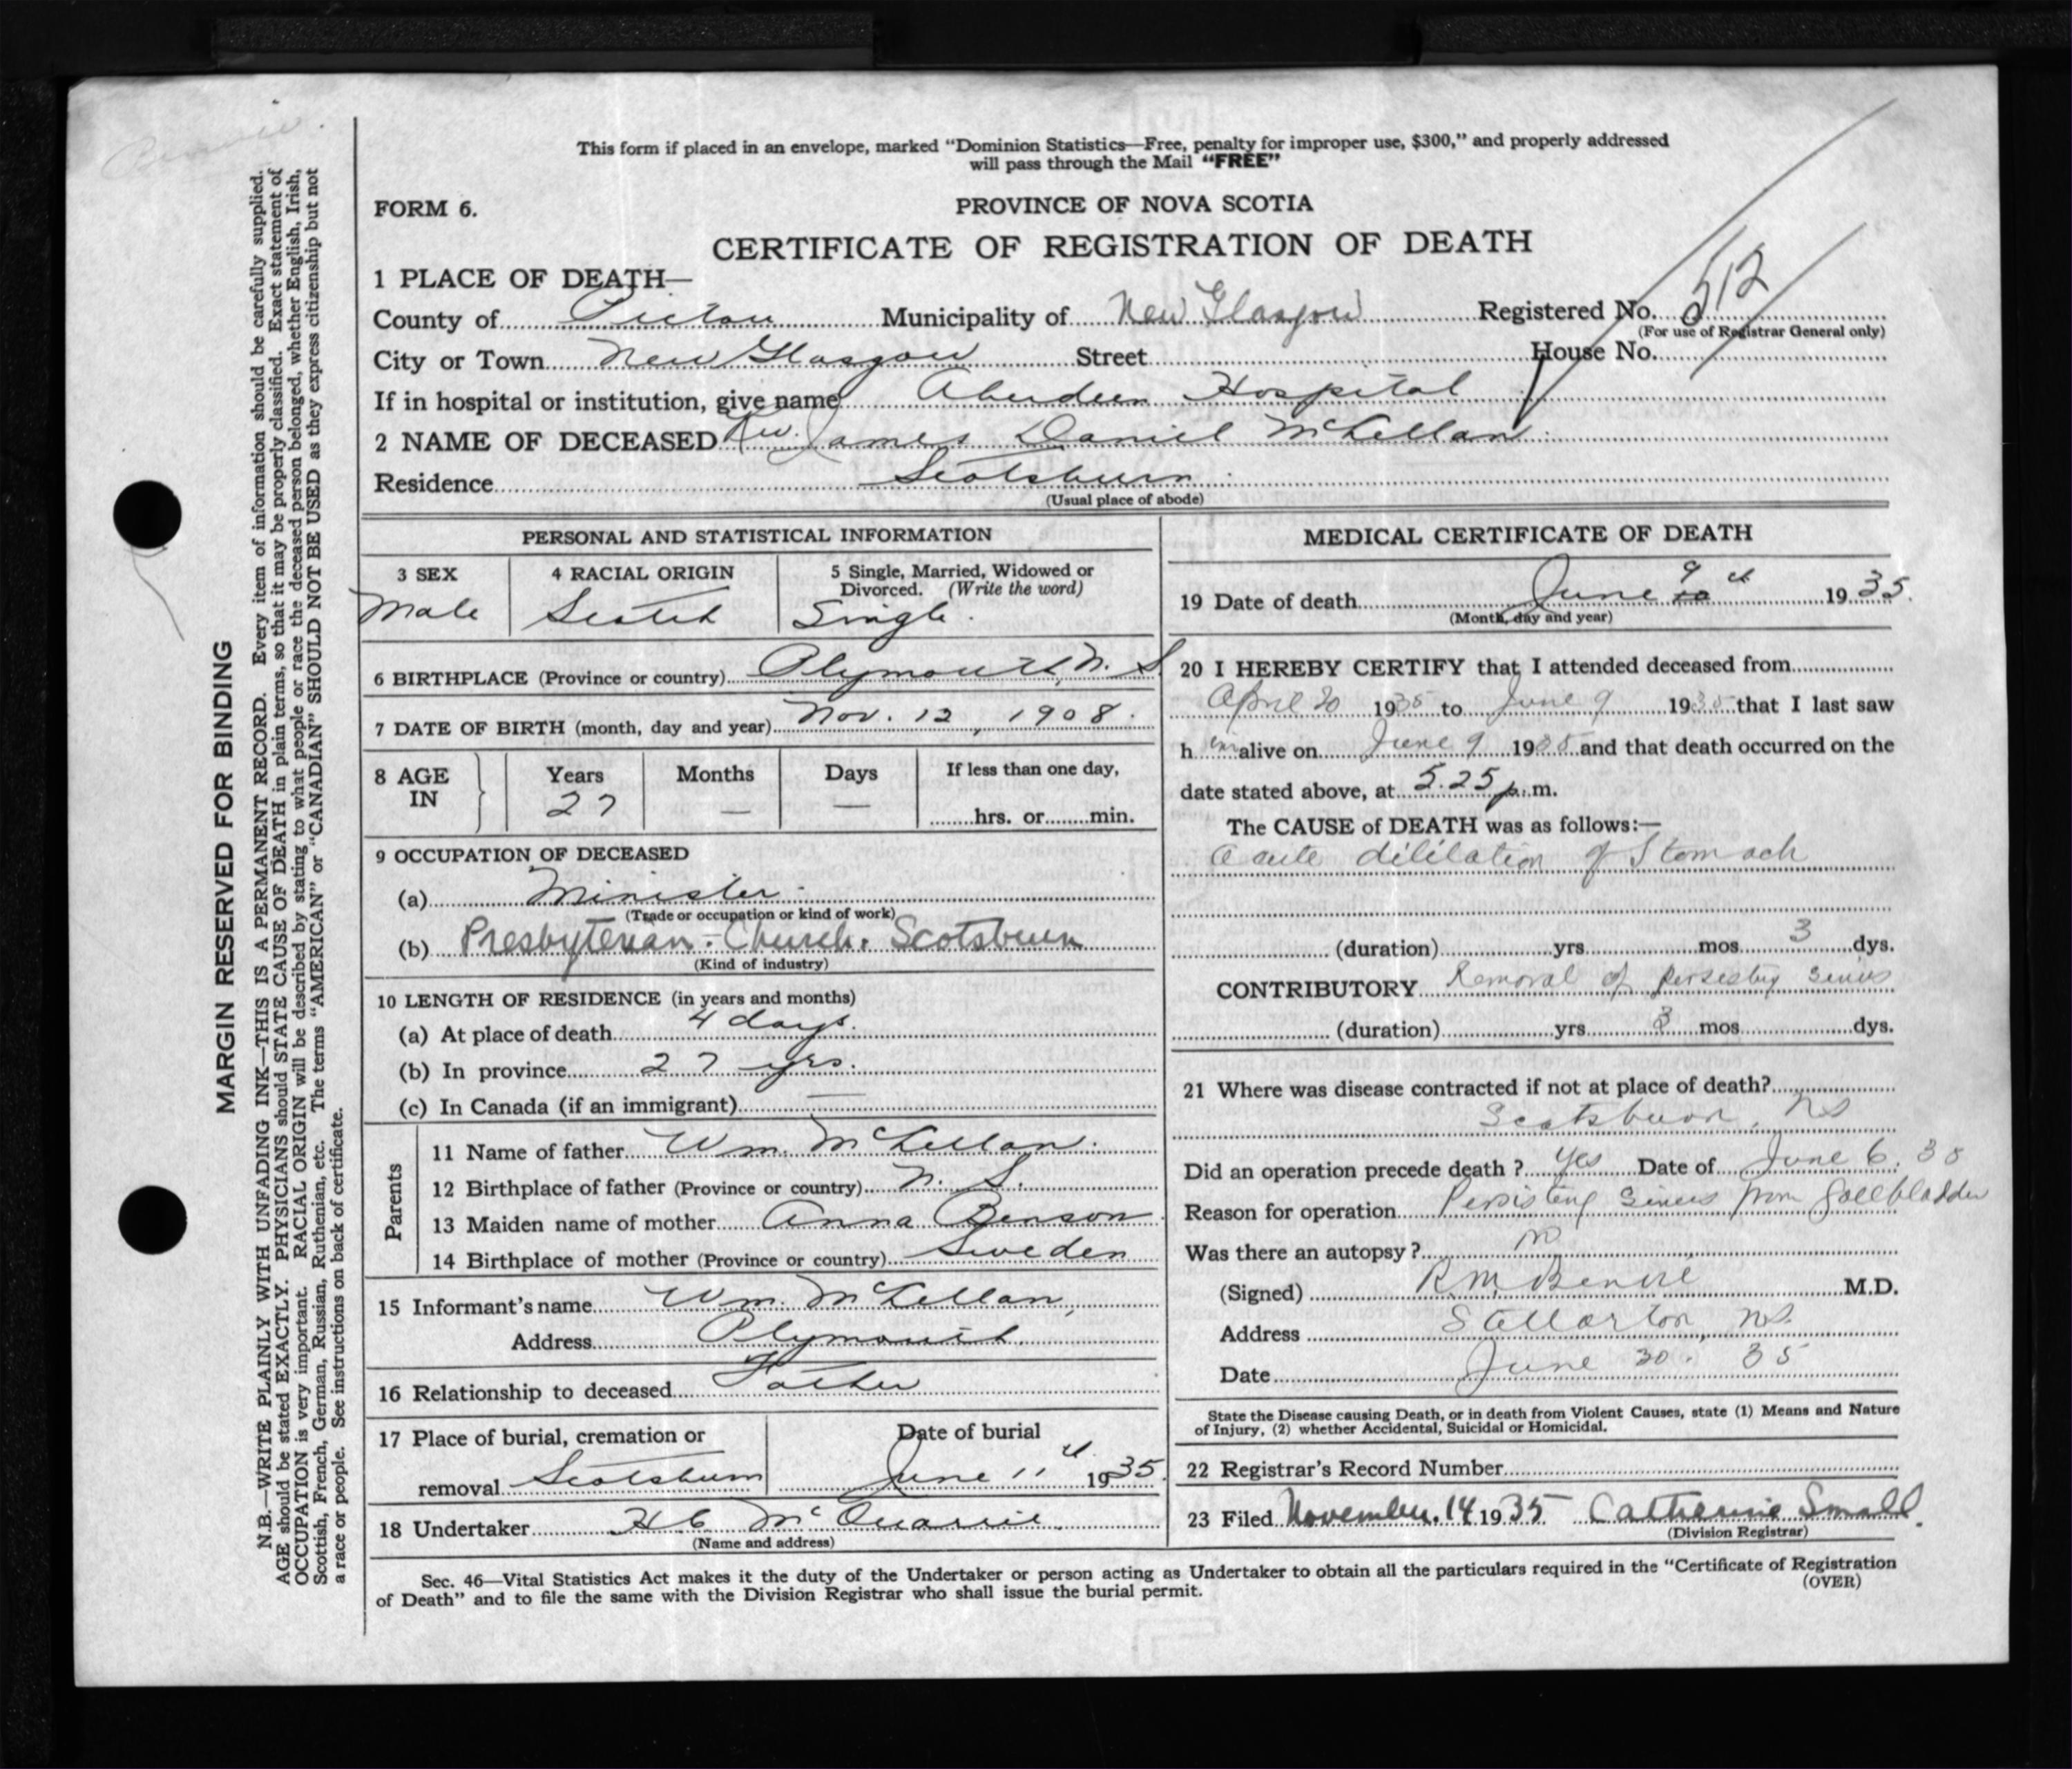 This form if placed in an envelope, marked “Dominion Statistics—Free, penalty for improper use, $300,” and properly addressed
will pass through the Mail “FREE”
FORM 6.
PROVINCE OF NOVA SCOTIA
CERTIFICATE OF REGISTRATION OF DEATH
1 PLACE OF DEATH—
County of Pictou Municipality of New Glasgow Registered No. 512
(For use of Registrar General only)
City or Town New Glasgow Street House No.
If in hospital or institution, give name Aberdeen Hospital
2 NAME OF DECEASED Rev. James Daniel McLellan
Residence Scotsburn
(Usual place of abode)
PERSONAL AND STATISTICAL INFORMATION
3 SEX 4 RACIAL ORIGIN 5 Single, Married, Widowed or
Divorced. (Write the word)
Male Scotch Single
6 BIRTHPLACE (Province or country) Plymouth, N. S
7 DATE OF BIRTH (month, day and year) Nov. 12, 1908.
8 AGE IN Years Months Days If less than one day,
27 — — hrs. or min.
9 OCCUPATION OF DECEASED
(a) Minister
(Trade or occupation or kind of work)
(b) Presbyterian - Church. Scotsburn
(Kind of industry)
10 LENGTH OF RESIDENCE (in years and months)
(a) At place of death 4 days.
(b) In province 27 yrs.
(c) In Canada (if an immigrant) —
Parents
11 Name of father Wm. McLellan.
12 Birthplace of father (Province or country) N. S.
13 Maiden name of mother Anna Benson
14 Birthplace of mother (Province or country) Sweden
15 Informant's name Wm. McLellan,
Address Plymouth
16 Relationship to deceased Father
17 Place of burial, cremation or Date of burial
removal Scotsburn June 11th 1935.
18 Undertaker H C McQuarrie
(Name and address)
MEDICAL CERTIFICATE OF DEATH
19 Date of death June 9 10 th 1935.
(Month, day and year)
20 I HEREBY CERTIFY that I attended deceased from
April 20 1935 to June 9 1935 that I last saw
h im alive on June 9 1935 and that death occurred on the
date stated above, at 5.25 p.m.
The CAUSE of DEATH was as follows:—
Acute dililation of Stomach
(duration) yrs mos 3 dys.
CONTRIBUTORY Removal of sinus
(duration) yrs 3 mos dys.
21 Where was disease contracted if not at place of death?
Scotsburn, NS
Did an operation precede death ? Yes Date of June 6. 35
Reason for operation Persisting sinus from Gallbladder
Was there an autopsy ? no
(Signed) R.M. M.D.
Address Stellarton, NS.
Date June 30. 35
State the Disease causing Death, or in death from Violent Causes, state (1) Means and Nature
of Injury, (2) whether Accidental, Suicidal or Homicidal.
22 Registrar's Record Number
23 Filed November. 14 1935 Catherine Small.
(Division Registrar)
Sec. 46—Vital Statistics Act makes it the duty of the Undertaker or person acting as Undertaker to obtain all the particulars required in the “Certificate of Registration
of Death” and to file the same with the Division Registrar who shall issue the burial permit.
(OVER)
MARGIN RESERVED FOR BINDING
N.B.—WRITE PLAINLY WITH UNFADING INK—THIS IS A PERMANENT RECORD. Every item of information should be carefully supplied.
AGE should be stated EXACTLY. PHYSICIANS should STATE CAUSE OF DEATH in plain terms, so that it may be properly classified. Exact statement of
OCCUPATION is very important. RACIAL ORIGIN will be described by stating to what people or race the deceased person belonged, whether English, Irish,
Scottish, French, German, Russian, Ruthenian, etc. The terms “AMERICAN” or “CANADIAN” SHOULD NOT BE USED as they express citizenship but not
a race or people. See instructions on back of certificate.